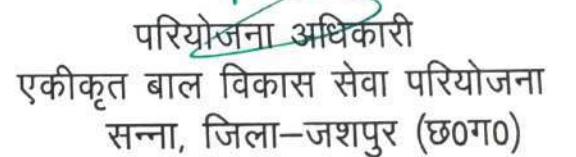 परियोजना अधिकारी
एकीकृत बाल विकास सेवा परियोजना
सन्ना, जिला–जशपुर (छ0ग0)